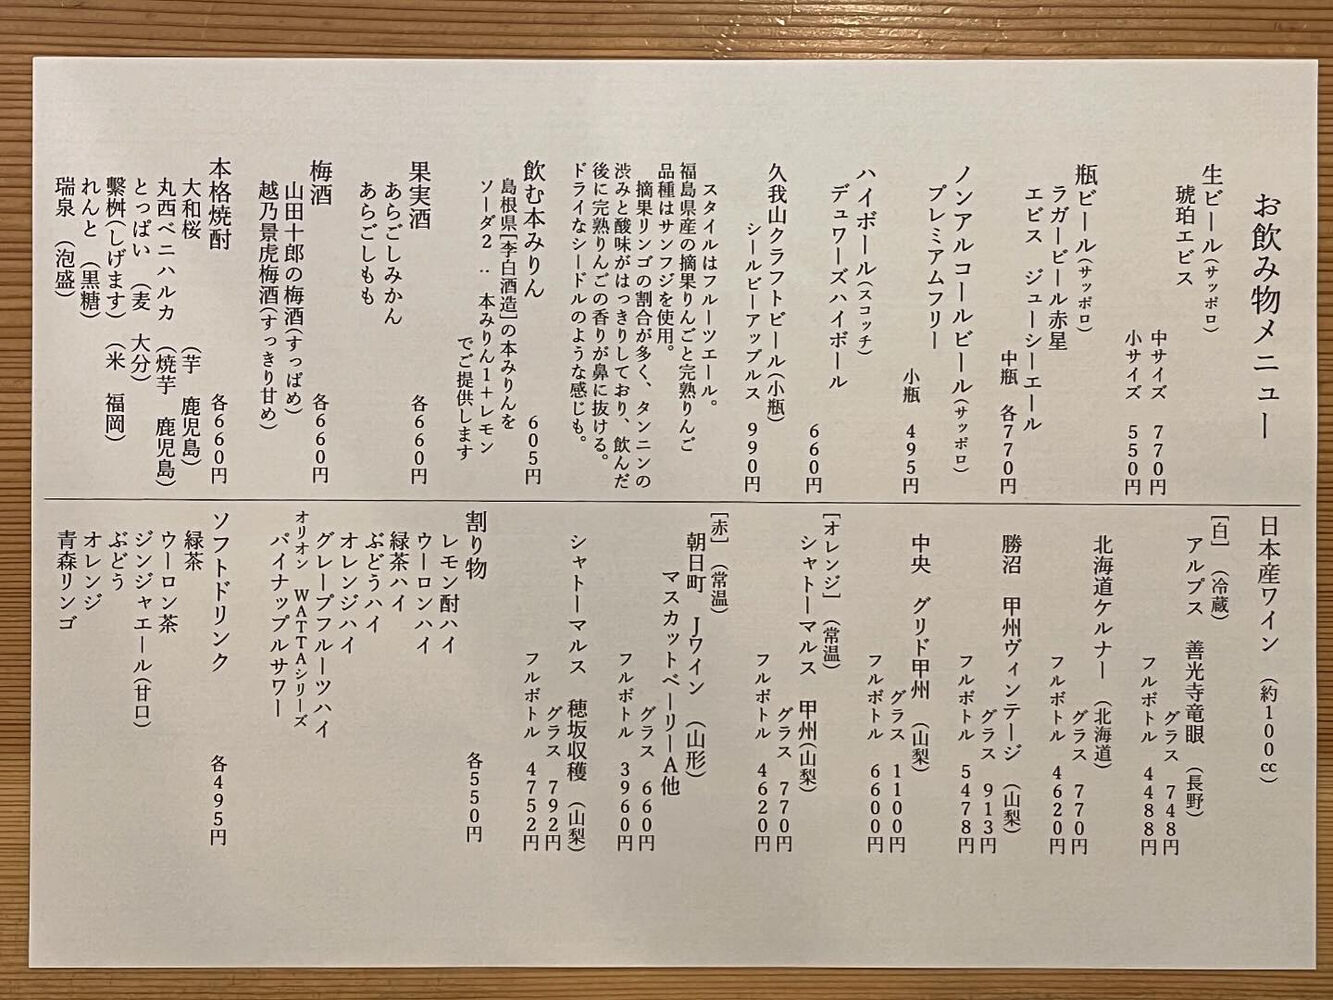 お飲み物メニュー
生ビール(サッポロ)
琥珀エビス
中サイズ 770円
小サイズ 550円
瓶ビール(サッポロ)
ラガービール赤星
エビス ジューシーエール
中瓶 各770円
ノンアルコールビール(サッポロ)
プレミアムフリー
小瓶 495円
ハイボール(スコッチ)
デュワーズハイボール
660円
久我山クラフトビール(小瓶)
シールビーアップルス 990円
スタイルはフルーツエール。
福島県産の摘果りんごと完熟りんご
品種はサンフジを使用。
摘果リンゴの割合が多く、タンニンの
渋みと酸味がはっきりしており、飲んだ
後に完熟りんごの香りが鼻に抜ける。
ドライなシードルのような感じも。
飲む本みりん 605円
島根県[李白酒造]の本みりんを
ソーダ2:本みりん1+レモン
でご提供します
果実酒 各660円
あらごしみかん
あらごしもも
梅酒 各660円
山田十郎の梅酒(すっぱめ)
越乃景虎梅酒(すっきり甘め)
本格焼酎 各660円
大和桜 (芋 鹿児島)
丸西ベニハルカ (焼芋 鹿児島)
とっぱい (麦 大分)
繫桝(しげます) (米 福岡)
れんと (黒糖)
瑞泉 (泡盛)
日本産ワイン (約100cc)
[白] (冷蔵)
アルプス 善光寺竜眼 (長野)
グラス 748円
フルボトル 4488円
北海道ケルナー (北海道)
グラス 770円
フルボトル 4620円
勝沼 甲州ヴィンテージ (山梨)
グラス 913円
フルボトル 5478円
中央 グリド甲州 (山梨)
グラス 1100円
フルボトル 6600円
[オレンジ] (常温)
シャトーマルス 甲州(山梨)
グラス 770円
フルボトル 4620円
[赤] (常温)
朝日町 Jワイン (山形)
マスカットベーリーA他
グラス 660円
フルボトル 3960円
シャトーマルス 穂坂収穫 (山梨)
グラス 792円
フルボトル 4752円
割り物 各550円
レモン酎ハイ
ウーロンハイ
緑茶ハイ
ぶどうハイ
オレンジハイ
グレープフルーツハイ
オリオン WATTAシリーズ
パイナップルサワー
ソフトドリンク 各495円
緑茶
ウーロン茶
ジンジャエール(甘口)
ぶどう
オレンジ
青森リンゴ